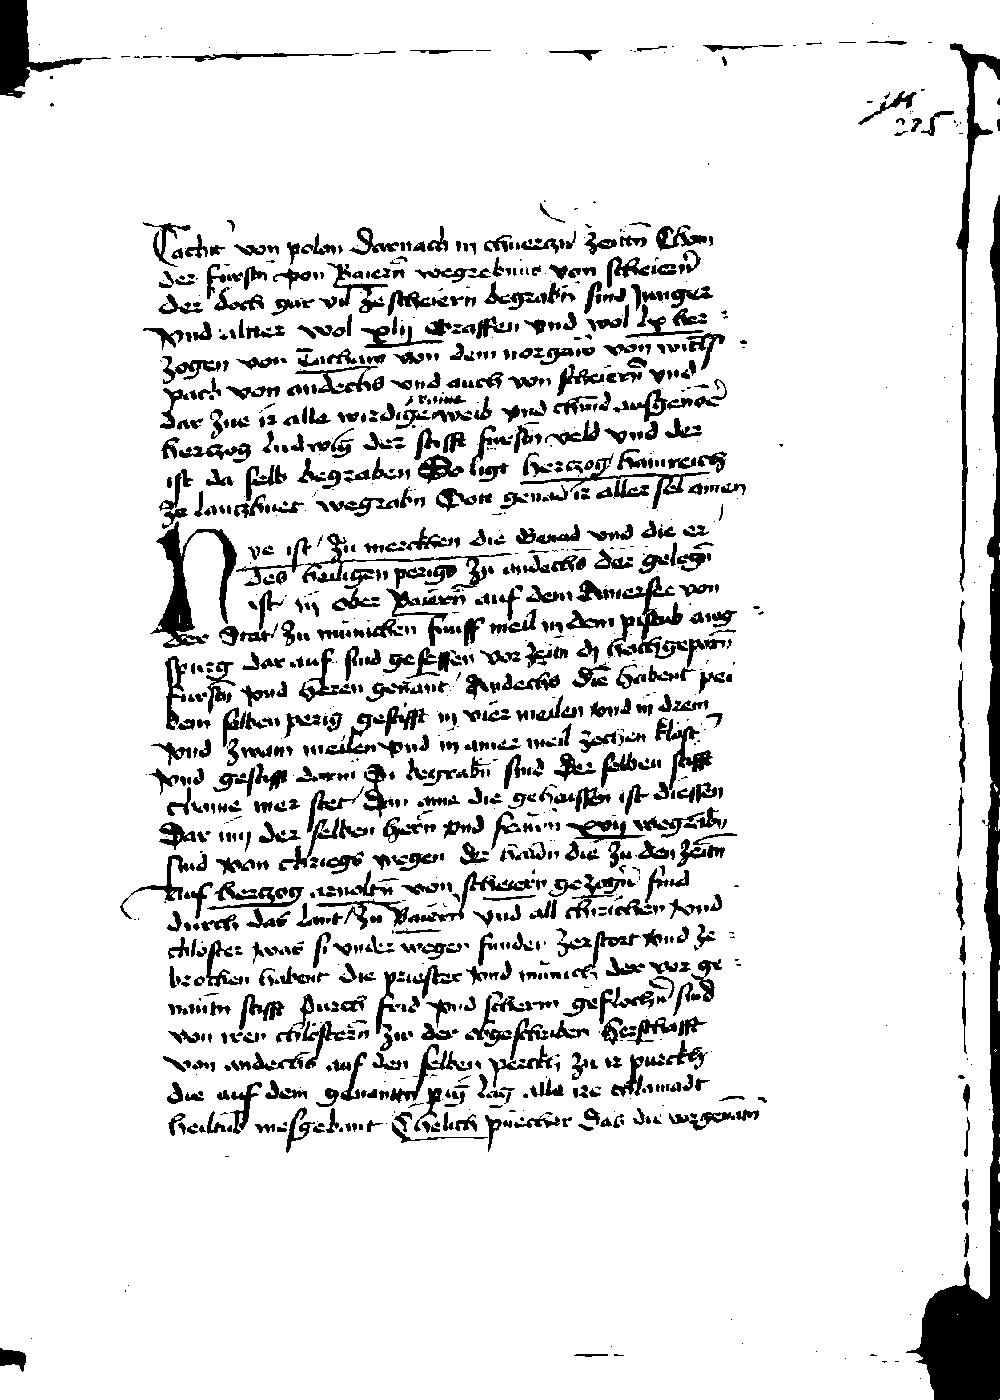 225
Tachtr von polan Darnach in churczn zeittn Chom
der fürstn von Baiern wegrebnus von scheiern
der doch gar vil ze scheiern begrabn sind Junger
vnd altter wol xlij Graffen vnd wol lx her
zogen von Tachaw von dem norgaw von witls
pach von andechs vnd auch von scheiern vnd
dar zue ir alle wirdige weib vnd chind ausgenomen
herczog ludwig der stifft fürstn veld vnd der
ist da selb begraben So ligt herczog hainreich
ze lanczhuet wegrabn Gott genad ir aller sel amen
Hye ist zu merckhen die Genad vnd die er
des heiligen perigs zu andechs der gelegn
ist in ober Baiern auf dem Amersee von
der Stat zu münichen fünff meil in dem pistub aug
spurg dar auf sind gesessen vor zeitn dj hochgeporn
fürstn vnd heren genant Andechs Die habent pei
dem selben perig gestifft in vier meilen vnd in drein
vnd zwain meilen vnd in ainer meil zechen klöst
vnd gestifft darin Si begrabn sind Der selben stifft
chaine mer stet Dan aine die gehaissen ist diessen
Dar inn der selben hern vnd frawn xvij wegrabn
sind von chriegs wegen die habn die zu den zeitn
Auf herczog arnoltn von scheiern gezogn sind
durch das lant zu Baiern vnd all chirichen vnd
chloster was si vnder wegen funden zerstort vnd ze
brochen habent die priester vnd münich der vor ge
nantn stifft Durch frid vnd scherm geflochn sind
von iren chlöstern zu der obgeschriben herschafft
von andechs auf den selben perckh zu ir purckh
die auf dem genantn perg lag alle ire chlainadt
heiltub mesgebant Chelich püecher Das die vorgenantn